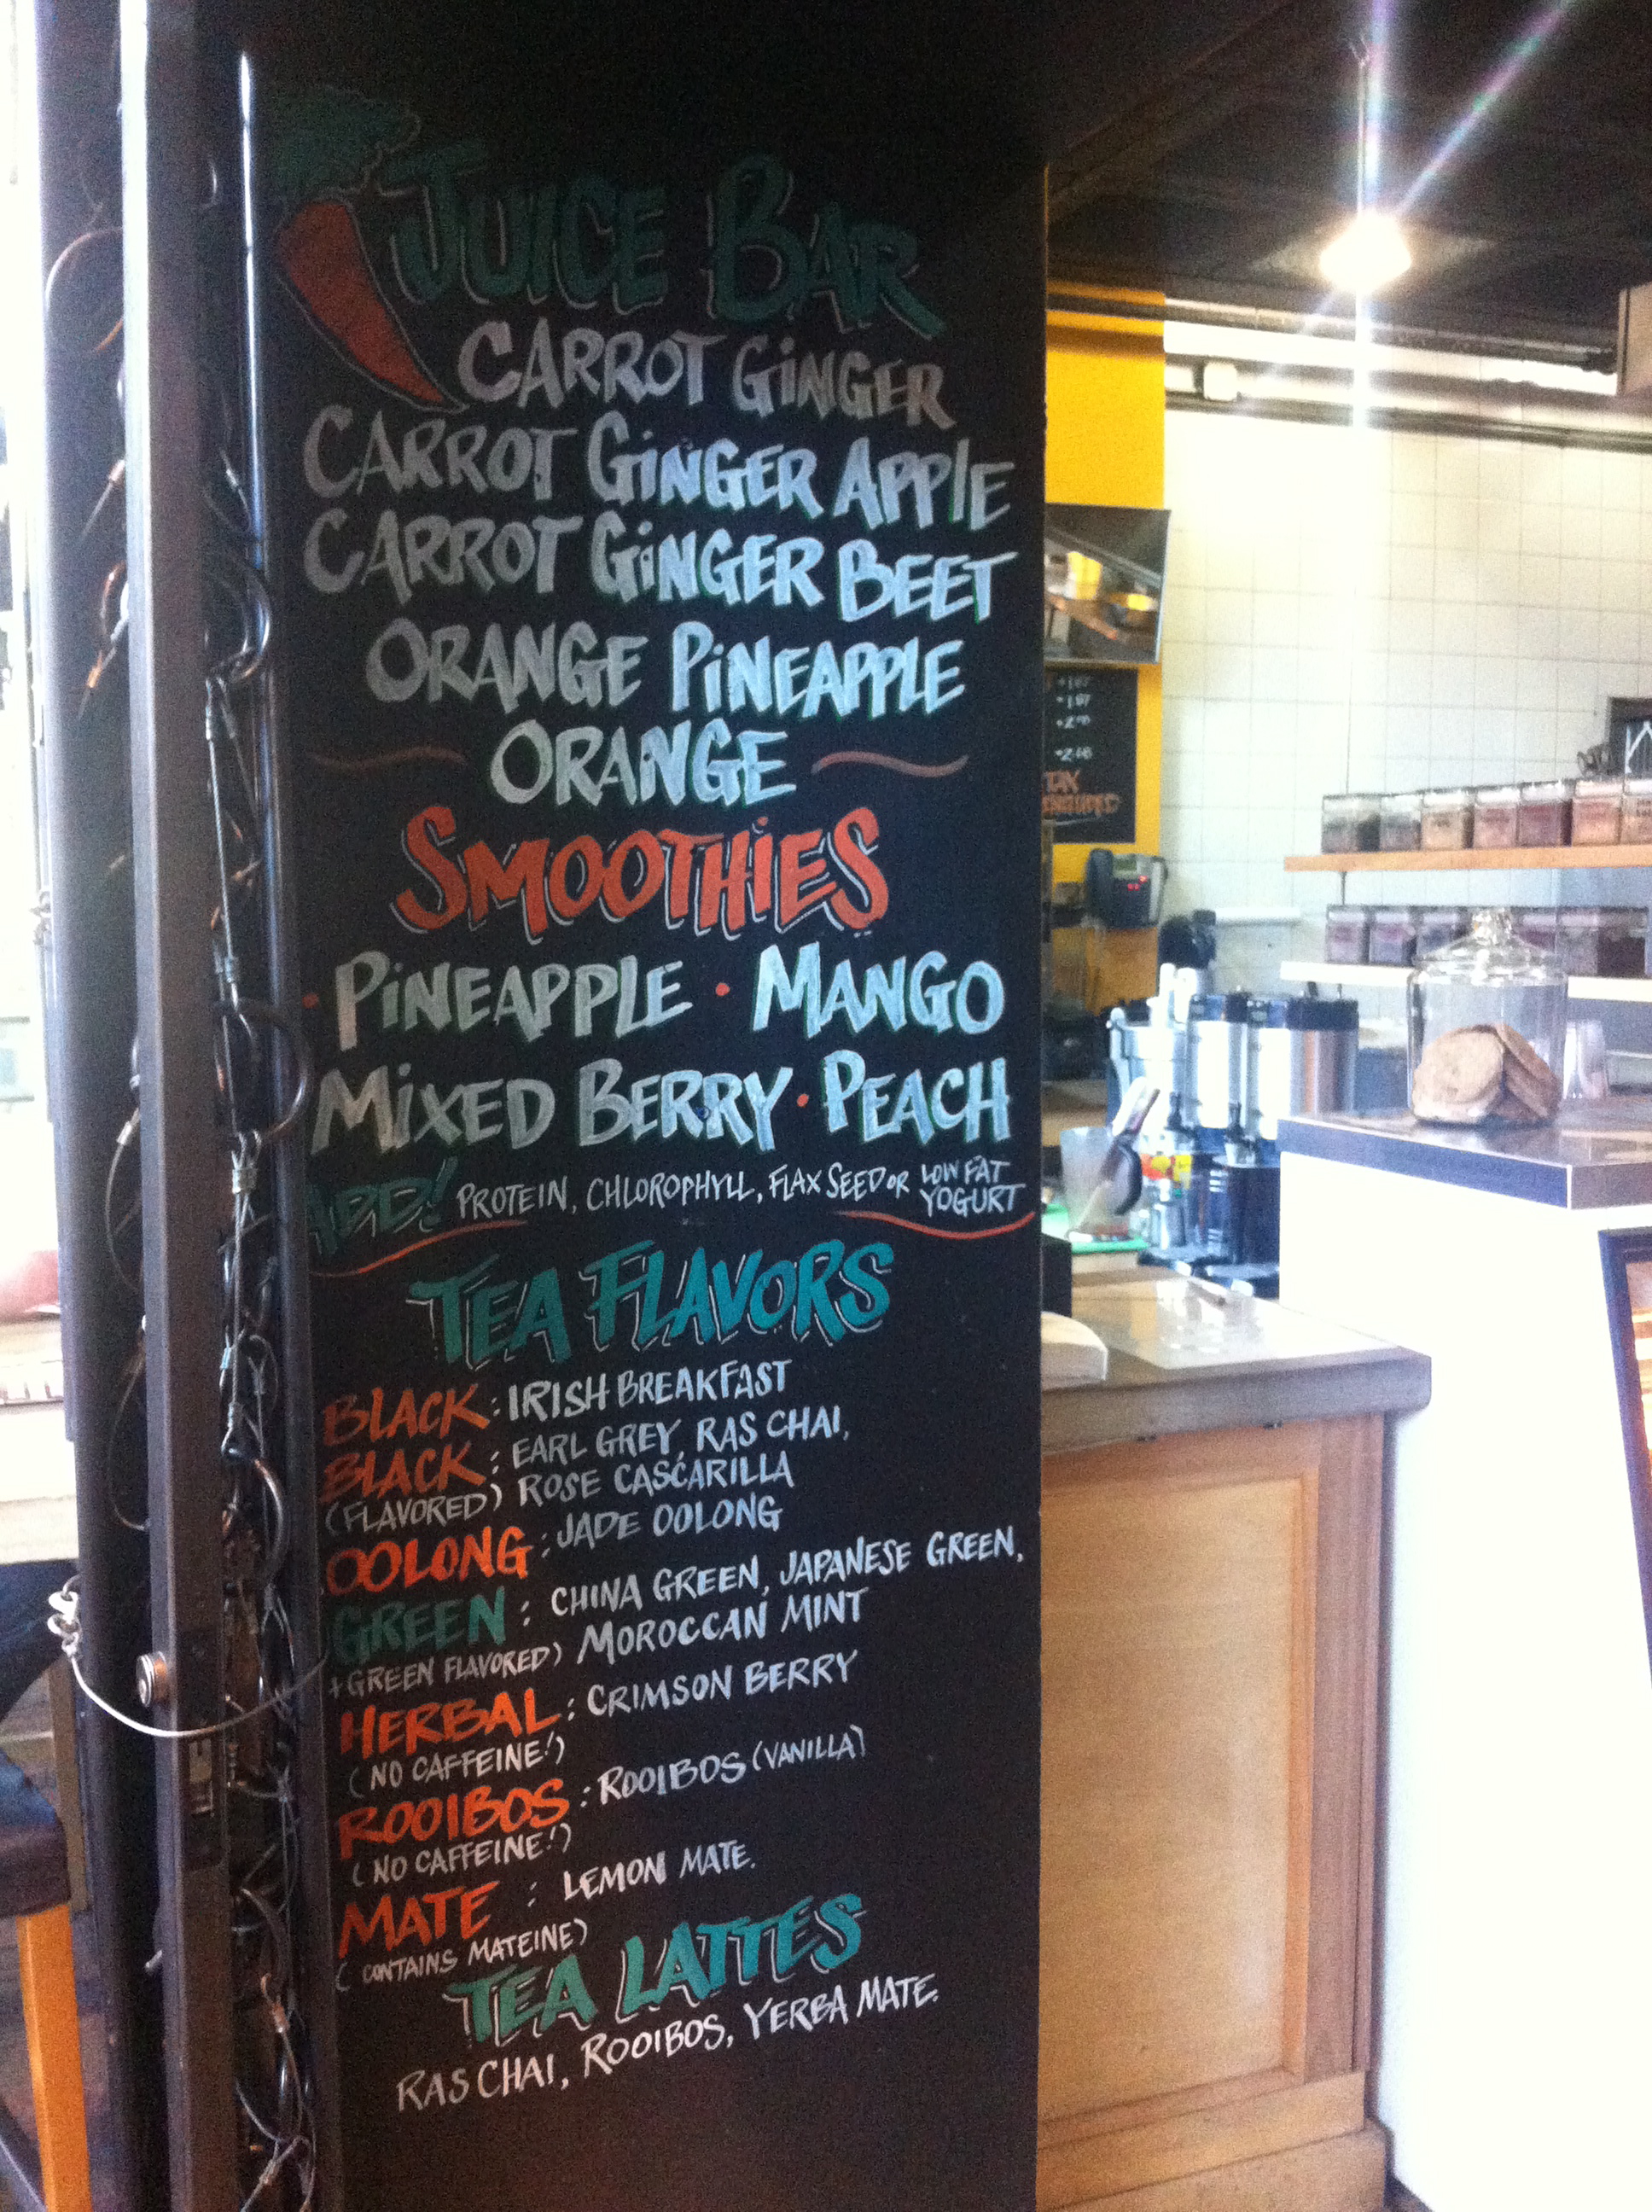 JUICE BAR
CARROT GiNGER
CARROT GiNGER APPLE
CARROT GiNGER BEET
ORANGE PiNEAPPLE
ORANGE
SMOOTHiES
• PiNEAPPLE • MANGO
MiXED BERRY • PEACH
ADD! PROTEIN, CHLOROPHYLL, FLAX SEED OR LOW FAT YOGURT
TEA FLAVORS
BLACK: IRISH BREAKFAST
BLACK: EARL GREY, RAS CHAI,
(FLAVORED) ROSE CASCARILLA
OOLONG: JADE OOLONG
GREEN: CHINA GREEN, JAPANESE GREEN,
+GREEN FLAVORED) MOROCCAN MINT
HERBAL: CRIMSON BERRY
(NO CAFFEINE!)
ROOIBOS: ROOIBOS (VANILLA)
(NO CAFFEINE!)
MATE: LEMON MATE.
(CONTAINS MATEINE)
TEA LATTES
RAS CHAI, ROOIBOS, YERBA MATE.
TAX